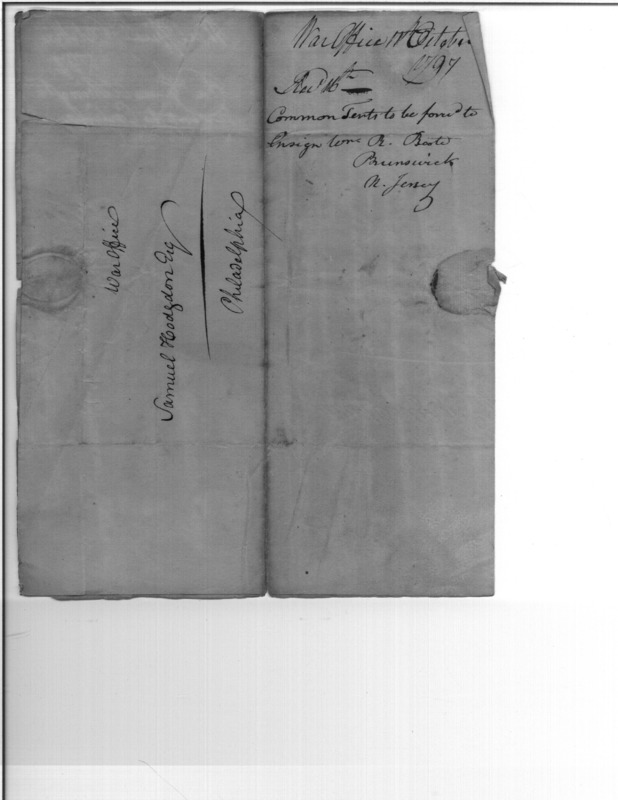 War Office 11th October
1797
Recd 16th
Common Tents to be forwd to
Ensign Wm R. Boote
Brunswick
N. Jersey
War Office
Samuel Hodgdon Esq
Philadelphia